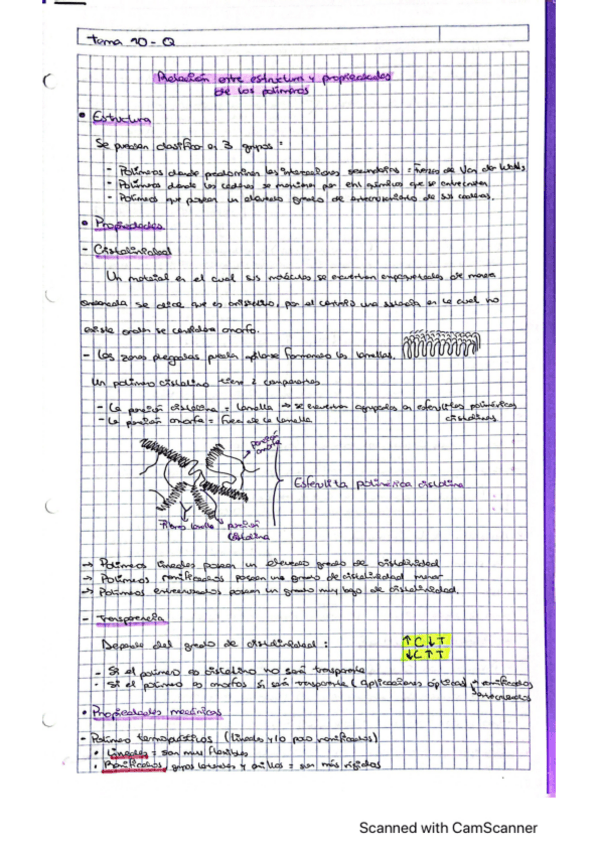 tema 10 - Q
Relación entre estructura y propiedades
de los polímeros
• Estructura
Se pueden clasificar en 3 grupos :
- Polímeros donde predominan las interacciones secundarias = fuerzas de Van der Walls
- Polímeros donde las cadenas se mantienen por enl químicos que se entrecruzan
- Polímeros que poseen un elevado grado de entrecruzamiento de sus cadenas.
• Propiedades
- Cristalinidad
Un material en el cual sus moléculas se encuentran empaquetadas de manera
ordenada se dice que es cristalino, por el contrario una sustancia en la cual no
existe orden se considera amorfo.
- Las zonas plegadas pueden apilarse formando las lamellas.
Un polímero cristalino tiene 2 componentes
- La porción cristalina = lamella → se encuentran agrupadas en esferulitas poliméricas
cristalinas
- La porción amorfa = fuera de la lamella
porción
amorfa
Esferulita polimérica cristalina
Fibra lamella
porción
cristalina
→ Polímeros lineales poseen un elevado grado de cristalinidad
→ Polímeros ramificados poseen un grado de cristalinidad menor
→ Polímeros entrecruzados poseen un grado muy bajo de cristalinidad.
- Transparencia
Depende del grado de cristalinidad :
↑C↓T
↓C↑T
- Si el polímero es cristalino no será transparente
- Si el polímero es amorfo si será transparente (aplicaciones ópticas) ramificados
entrecruzados
• Propiedades mecánicas
- Polímero termoplásticos (lineales y/o poco ramificados)
• Lineales = son muy flexibles
• Ramificados, grupos laterales y anillos = son más rígidos
Scanned with CamScanner